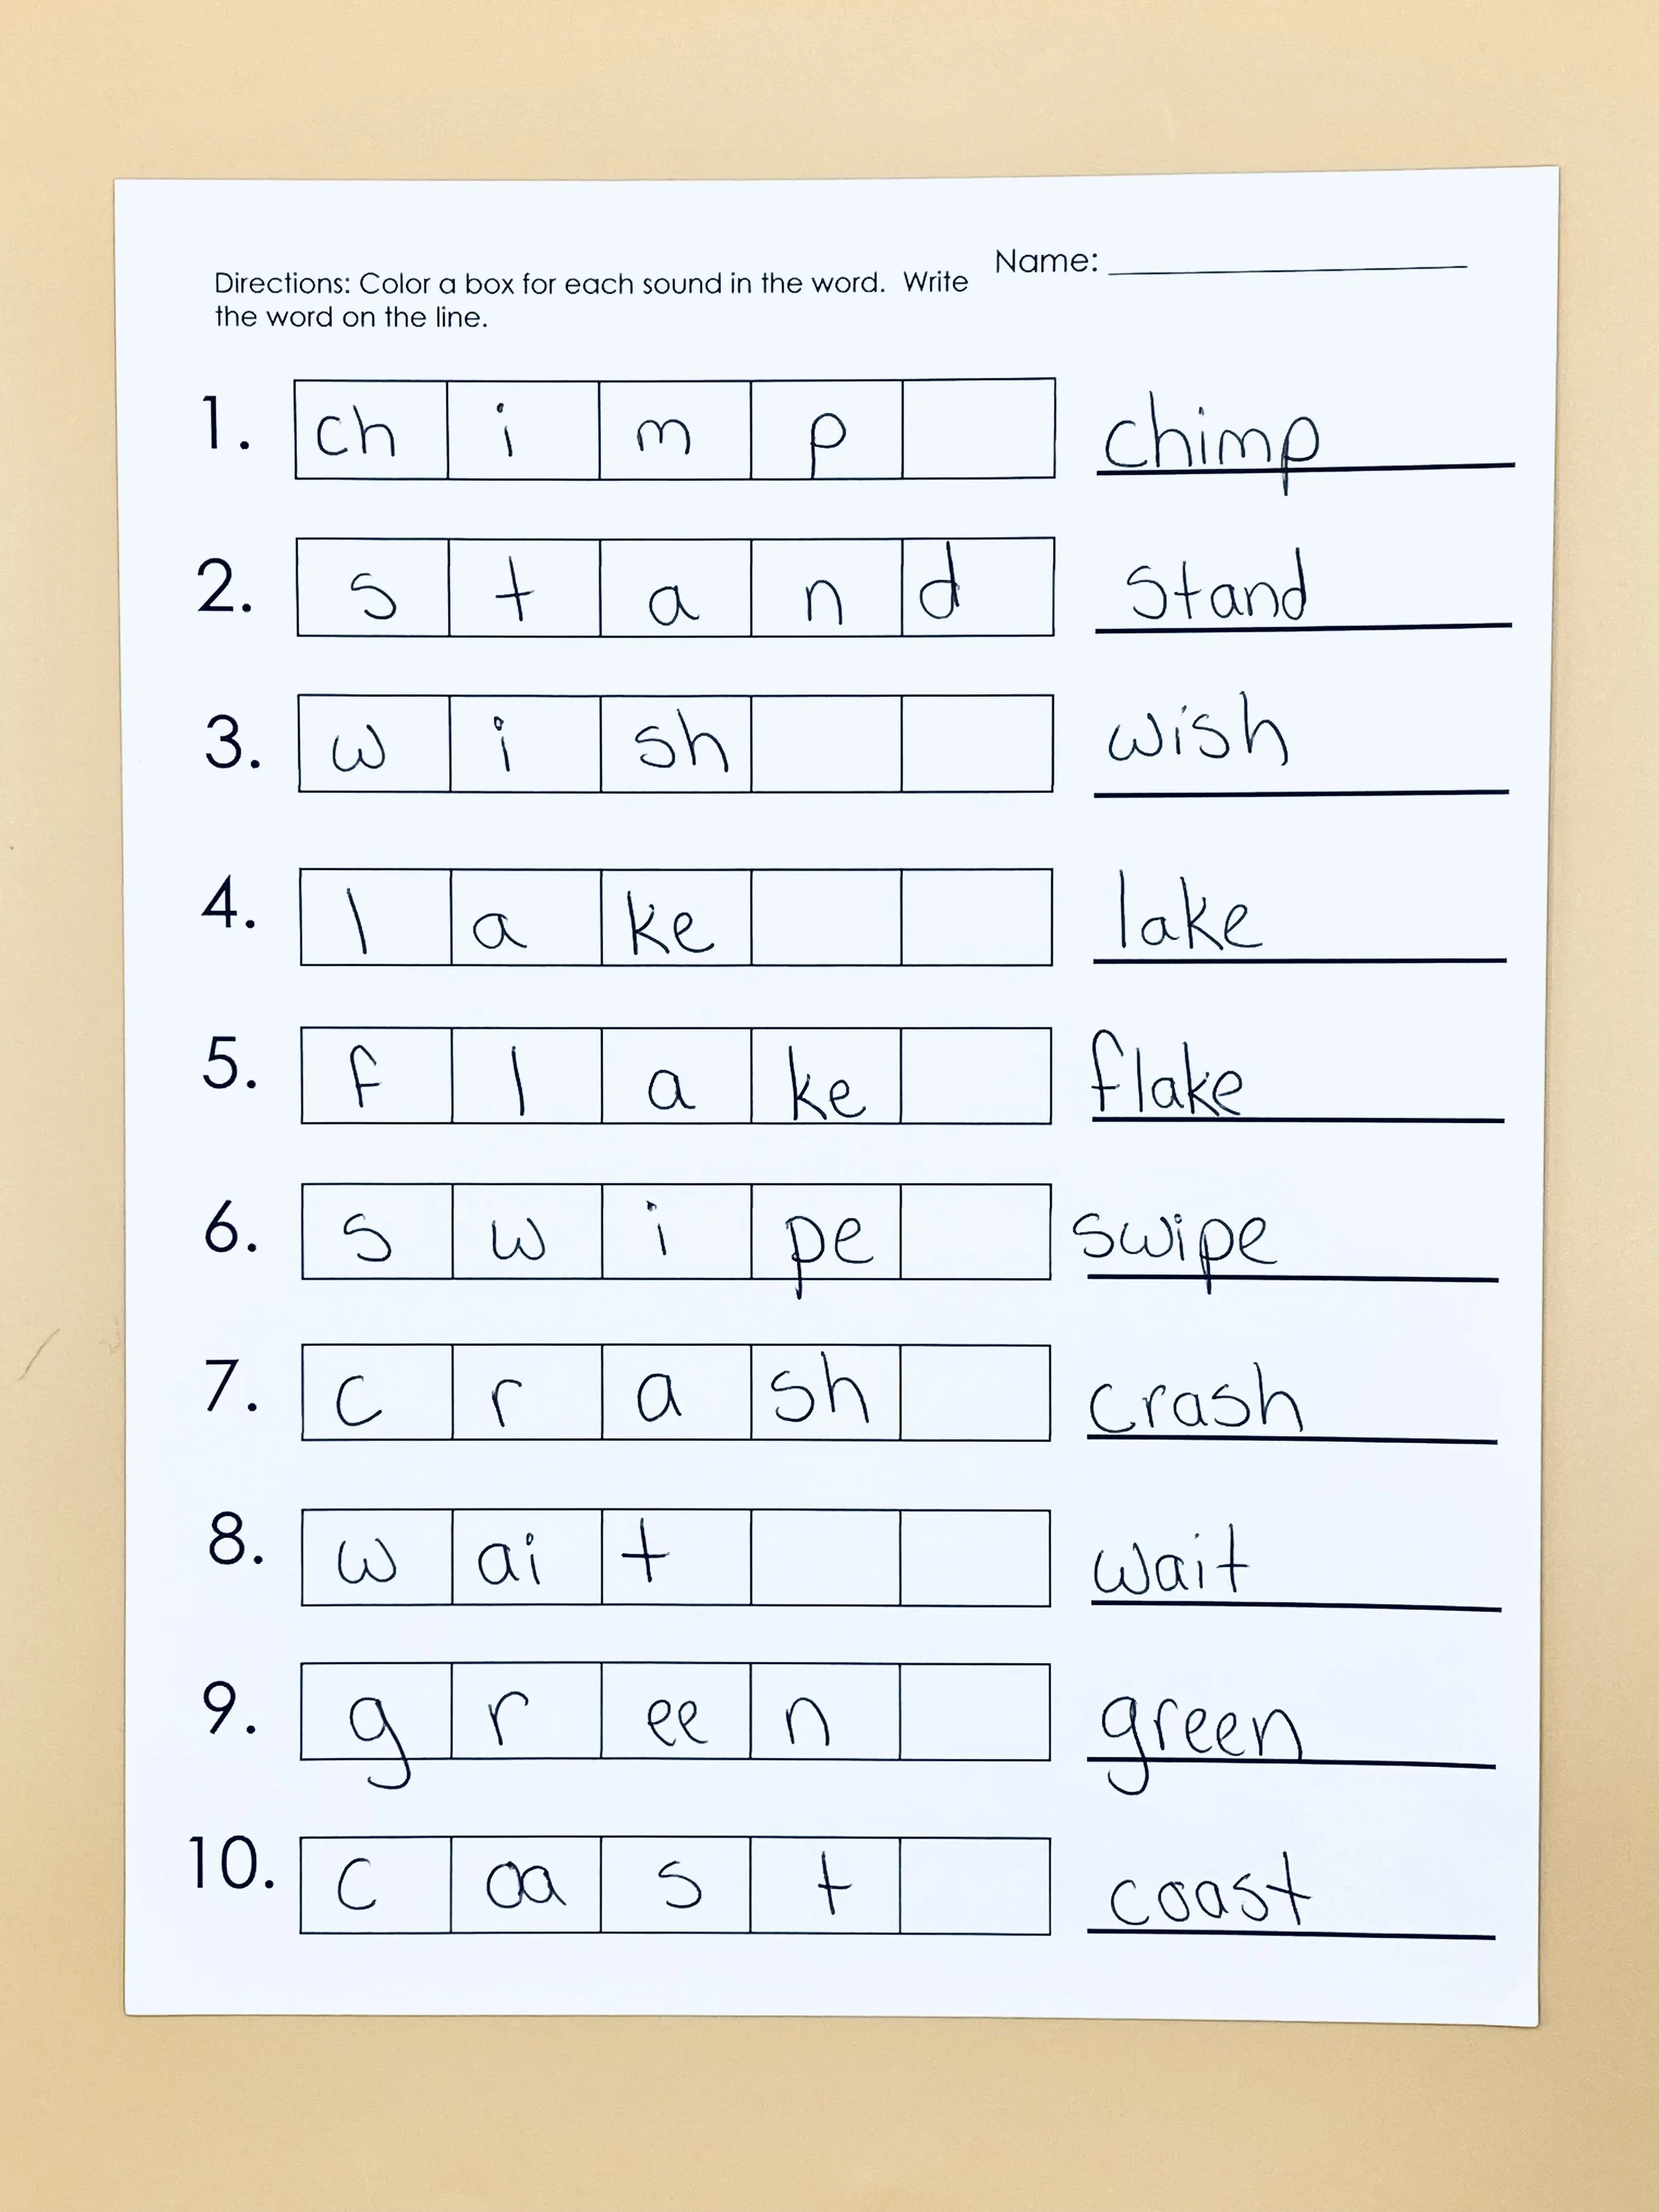 Name:
Directions: Color a box for each sound in the word. Write
the word on the line.
1. ch i m p chimp
2. s t a n d stand
3. w i sh wish
4. l a ke lake
5. f l a ke flake
6. s w i pe swipe
7. c r a sh crash
8. w ai t wait
9. g r ee n green
10. c oa s t coast